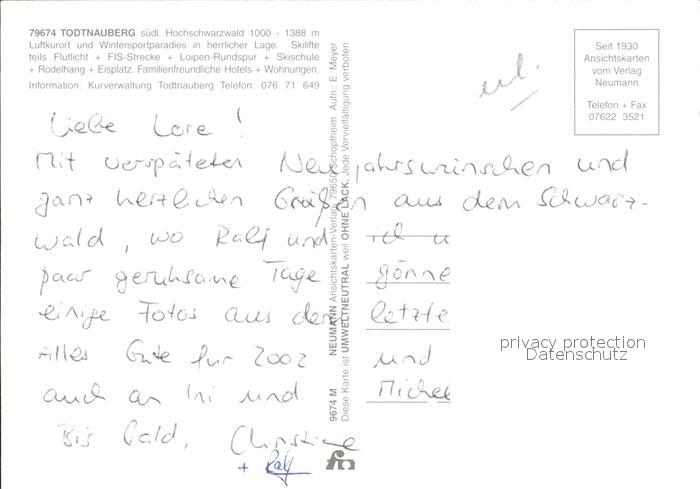 79674 TODTNAUBERG südl. Hochschwarzwald 1000 - 1388 m
Luftkurort und Wintersportparadies in herrlicher Lage. Skilifte
teils Flutlicht + FIS-Strecke + Loipen-Rundspur + Skischule
+ Rodelhang + Eisplatz. Familienfreundliche Hotels + Wohnungen.
Information: Kurverwaltung Todtnauberg Telefon: 076 71 649
Seit 1930
Ansichtskarten
vom Verlag
Neumann
Telefon + Fax
07622 3521
Liebe Lore!
Mit verspäteten Neujahrswünschen und
ganz herzlichen Grüßen aus dem Schwarz-
wald, wo Ralf und ich
paar geruhsame Tage gönne
einige Fotos aus dem letzte
Alles Gute für 2002 und
auch an Ini und Michel
Bis bald, Christiane
+ Ralf
9674 M NEUMANN Ansichtskarten-Verlag 79650 Schopfheim Aufn.: E. Meyer
Diese Karte ist UMWELTNEUTRAL weil OHNE LACK. Jede Vervielfältigung verboten
privacy protection
Datenschutz